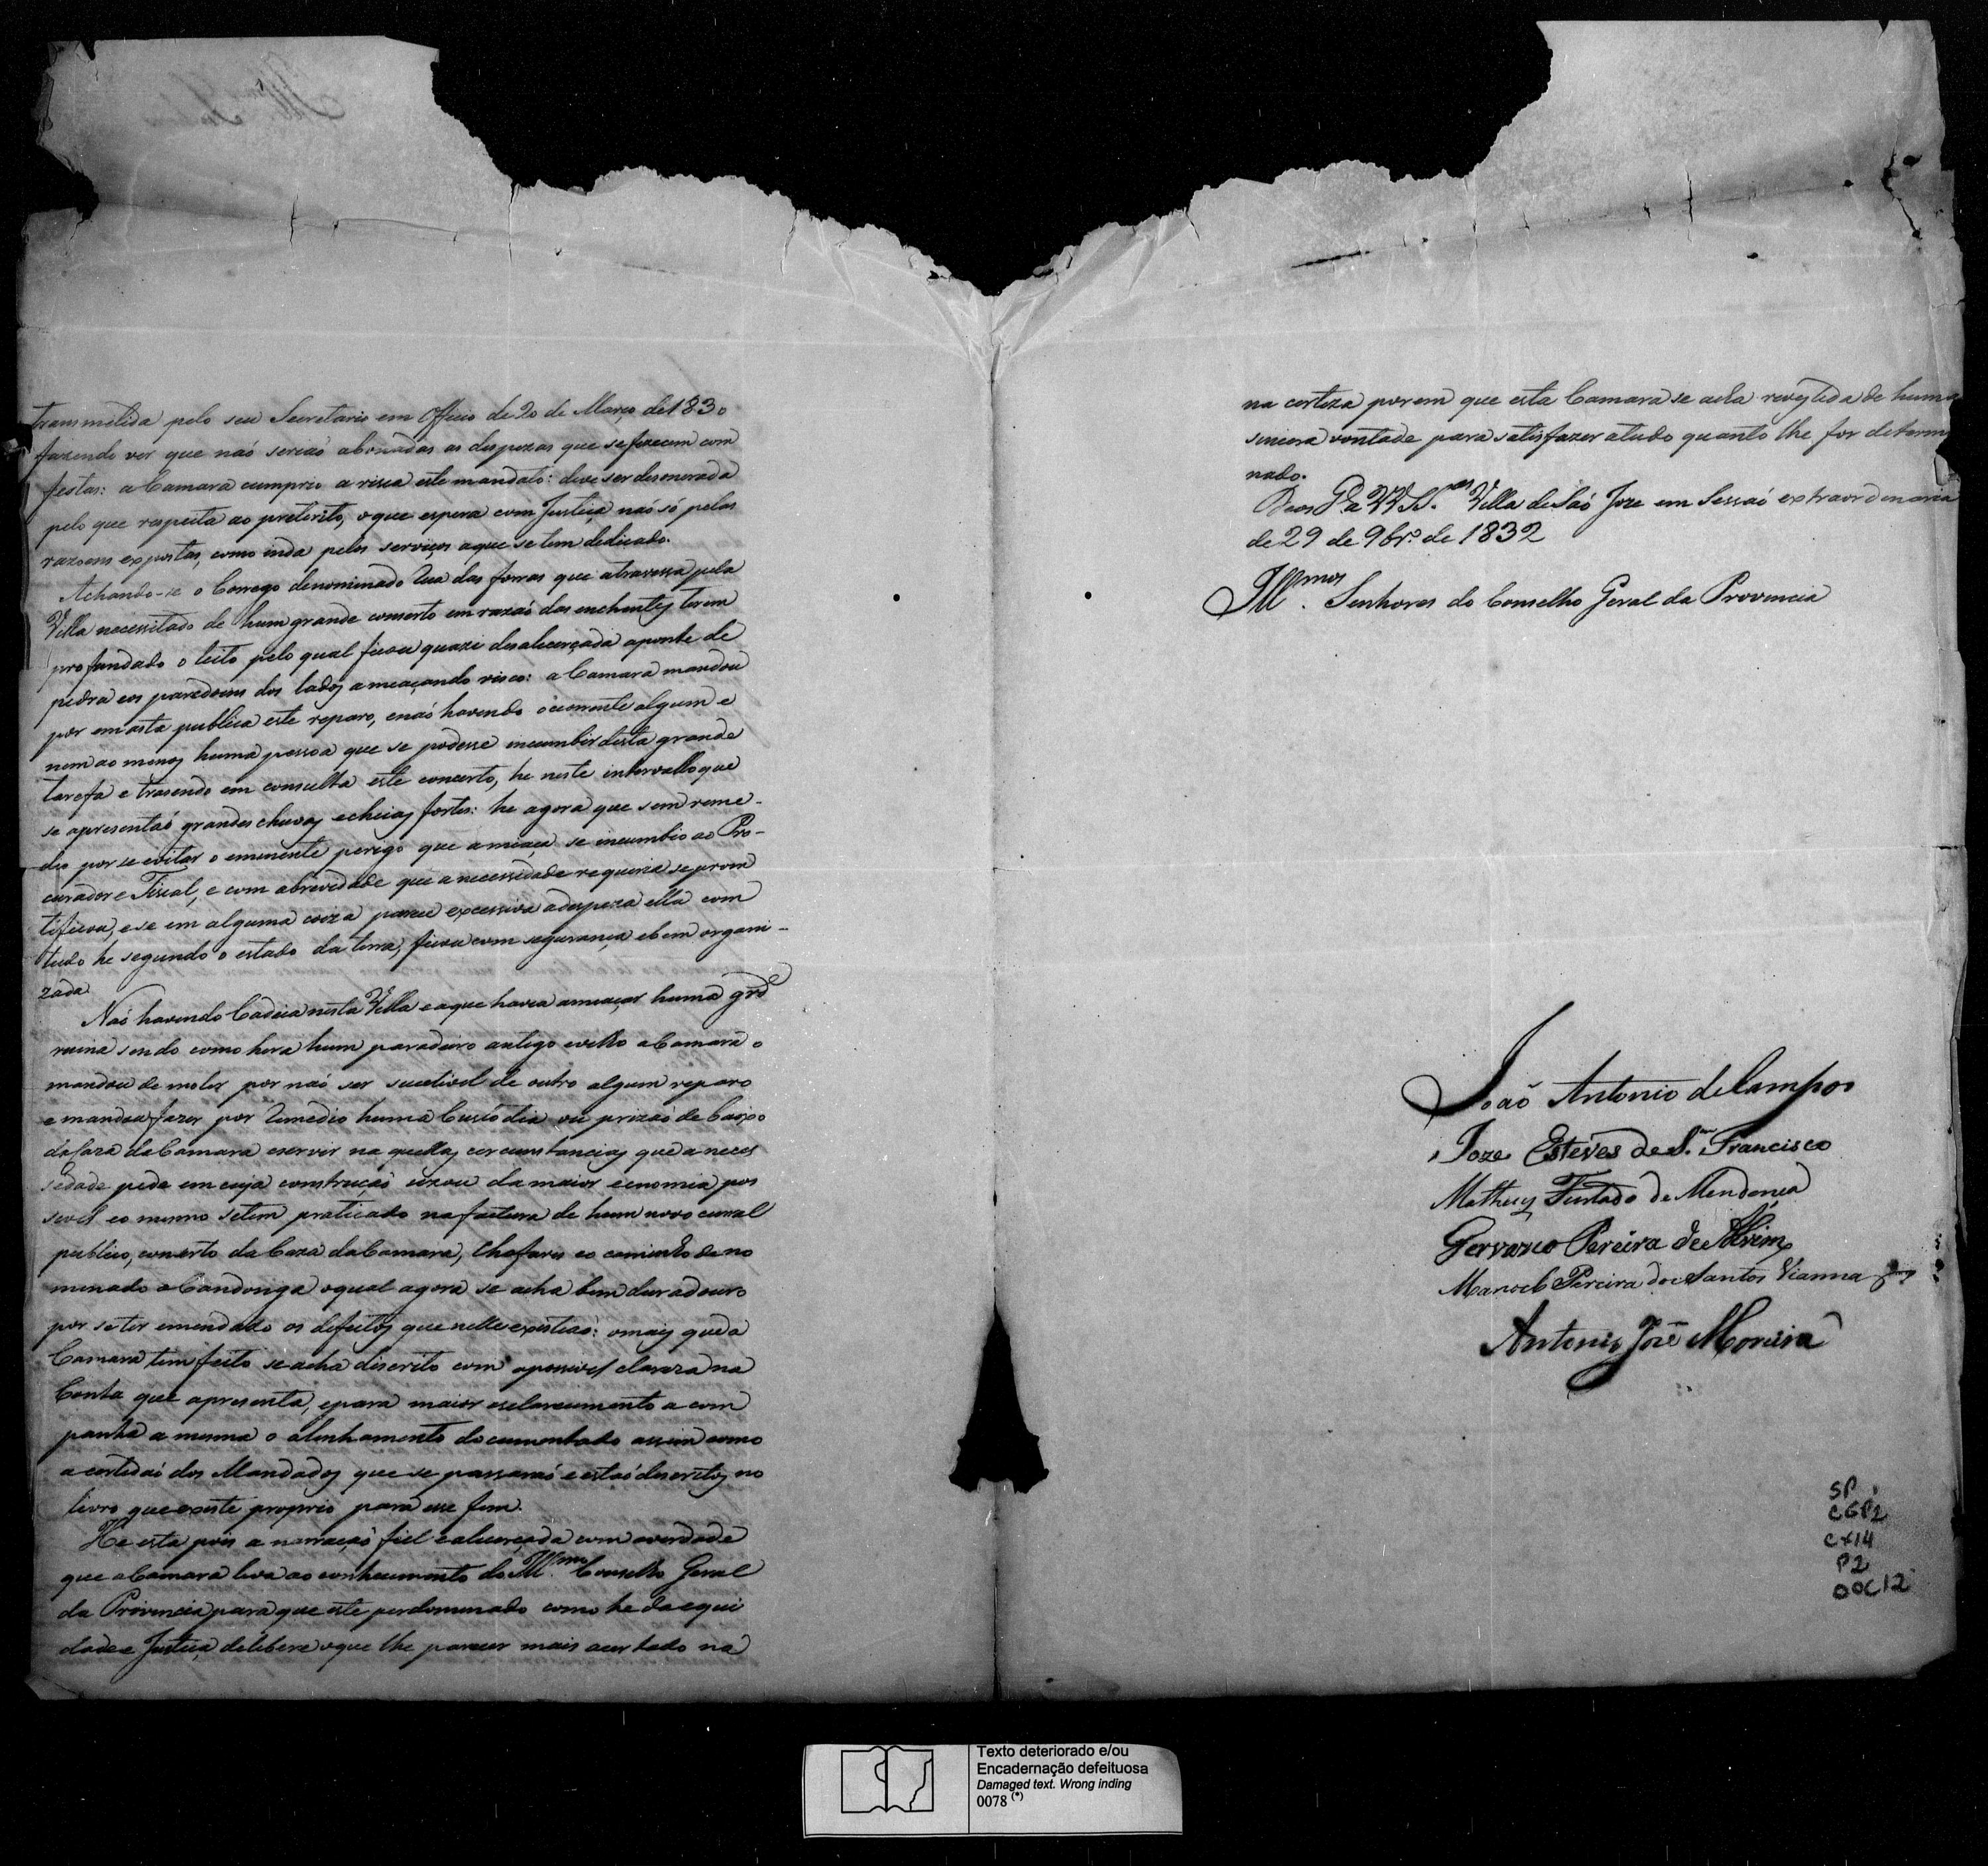 transmetida pelo seu Secretario em Officio de 20 de Março de 1830
fazendo ver que naõ seriaõ abonadas as despezas que se fizecem com
festas: a Camara cumprio a risca este mandato: deve ser desonerada
pelo que respeita ao preterito, oque espera com Justiça naõ só pelas
razoens expostas, como inda pelos serviços aque se tem dedicado.
Achando-se o Corrego denominado Rua das forras que atravessa pela
Villa necessitado de hum grande conserto em razaõ das enchentes terem
profundado o leito pelo qual ficou quazi desalicerçada aponte de
pedra eos paredoens dos lados ameaçando risco: a Camara mandou
por em asta publica este reparo, enaõ havendo ocorrente algum e
nem ao menos huma pessoa que se podesse incumbir desta grande
tarefa e trasendo em consulta este concerto, he neste intervallo que
se apresentaõ grandes chuvas echeias fortes: he agora que sem reme-
dio por se evitar o eminente perigo que ameaça se incumbio ao Pro-
curador e Fiscal, e com abrevidade que a necessidade requeria se prom
tificou, e se em alguma coiza parece excessiva adespeza ella com
tudo he segundo o estado da terra, ficou com segurança ebem organi-
zada.
Naõ havendo Cadeia nesta Villa e aque havia ameaçar huma grd.e
ruina sendo como hera hum paradeiro antigo evelho aCamara o
mandou demoler por naõ ser sucetivel de outro algum reparo
e mandou fazer por remedio huma Custodia ou prizaõ de baixo
da Caza da Camara eservir na quellas circumstancias que a neces
sidade pede em cuja construçaõ uzou da maior economia pos
sivel eo mesmo setem praticado na factura de hum novo curral
publico, concerto da Caza da Camara, Chafaris eo caminho deno
menado a Candonga oqual agora se acha bem duradouro
por se ter emendado os defeitos que nelle existiaõ: omais que a
Camara tem feito se acha discrito com apossivel clareza na
Conta que apresenta, epara maior esclarecimento acom
panha a mesma o alinhamento documentado assim como
a certidaõ dos Mandados que se passaraõ e estaõ descritos no
livro que existe proprio para esse fim.
He esta pois a narraçaõ fiel e alicerçada com averdade
que aCamara leva ao conhecimento do Ill.mo Conselho Geral
da Provincia para que este perdominado como he da equi
dade e Justiça delibere oque lhe parecer mais acertado na
na certeza porem que esta Camara se acha revestida de huma
sincera vontade para satisfazer atudo quanto lhe for determi
nado.
Deos G.e a VV. SS.as Villa de Saõ Joze em Sessaõ extraordenaria
de 29 de 9br.o de 1832
Ill.mos Senhores do Conselho Geral da Provincia
Joaõ Antonio de Campos
Joze Esteves de S. Francisco
Matheus Furtado de Mendonça
Gervazio Pereira de Alvim
Manoel Pereira dos Santos Vianna
Antonio Joze Moreira
SP
CGP2
CX14
P2
DOC12
Texto deteriorado e/ou
Encadernação defeituosa
Damaged text. Wrong inding
0078 (*)